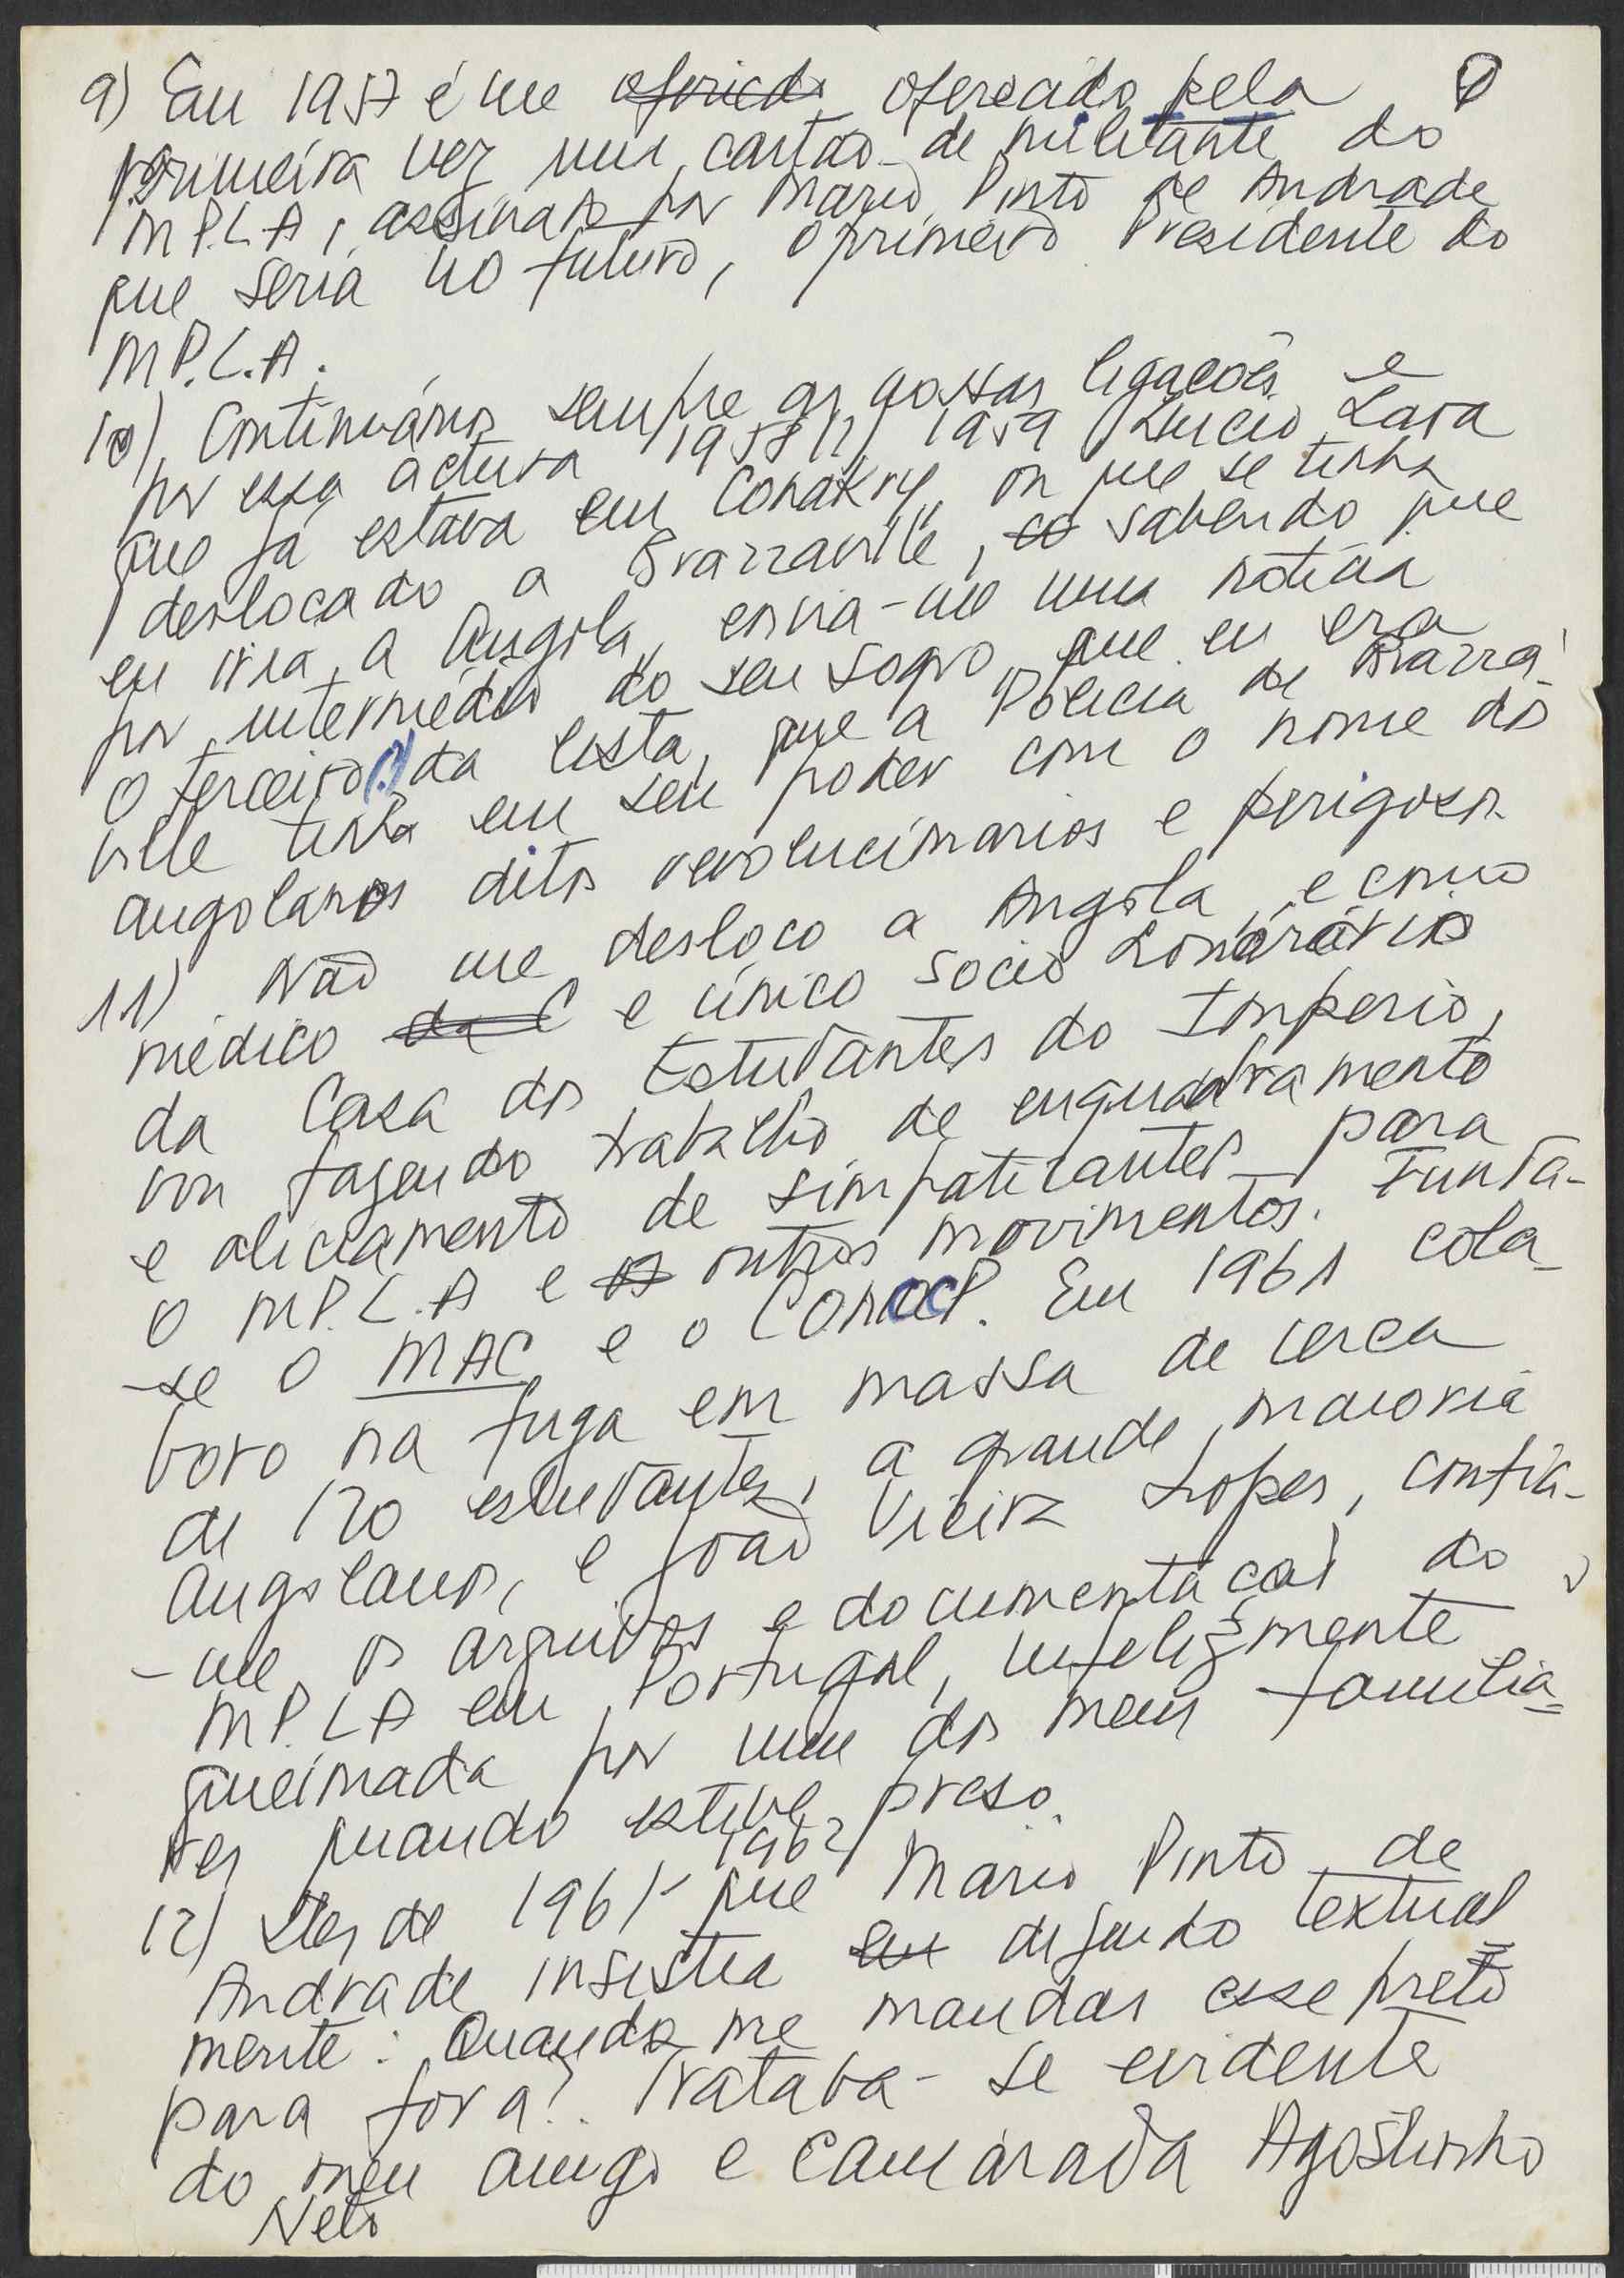 9) Em 1957 é me oferecido oferecido pela
primeira vez um cartão de militante do
M.P.L.A, assinado por Mario Pinto de Andrade
que seria no futuro, o primeiro Presidente do
M.P.L.A.
10) Continuámos sempre as nossas ligações e
por essa actura 1958// 1959 Lucio Lara
que já estava em Conakry, ou que se tinha
deslocado a Brazzaville, sabendo que
eu iria a Angola, envia-me uma noticia
por intermédio do seu sogro que eu era
o terceiro (?) da lista, que a Policia de Brazza-
ville tinha em seu poder com o nome dos
angolanos ditos revolucionarios e perigosos.
11) Não me desloco a Angola, e como
médico da C e único socio honorário
da Casa dos Estudantes do Imperio,
vou fazendo trabalho de enquadramento
e aliciamento de simpatizantes para
o M.P.L.A e os outros movimentos. Funda-
-se o MAC e o CONCP. Em 1961 cola-
boro na fuga em massa de cerca
de 120 estudantes, a grande maioria
angolanos, e João Vieira Lopes, confia-
-me os arquivos e documentação do
M.P.L.A em Portugal, infelizmente
queimada por um dos meus familia-
res quando estive preso.
12) Desde 1961-1962 que Mario Pinto de
Andrade insistia em dizendo textual
mente: Quando me mandas esse preto
para fora?. Tratava-se evidente
do meu amigo e camarada Agostinho
Neto